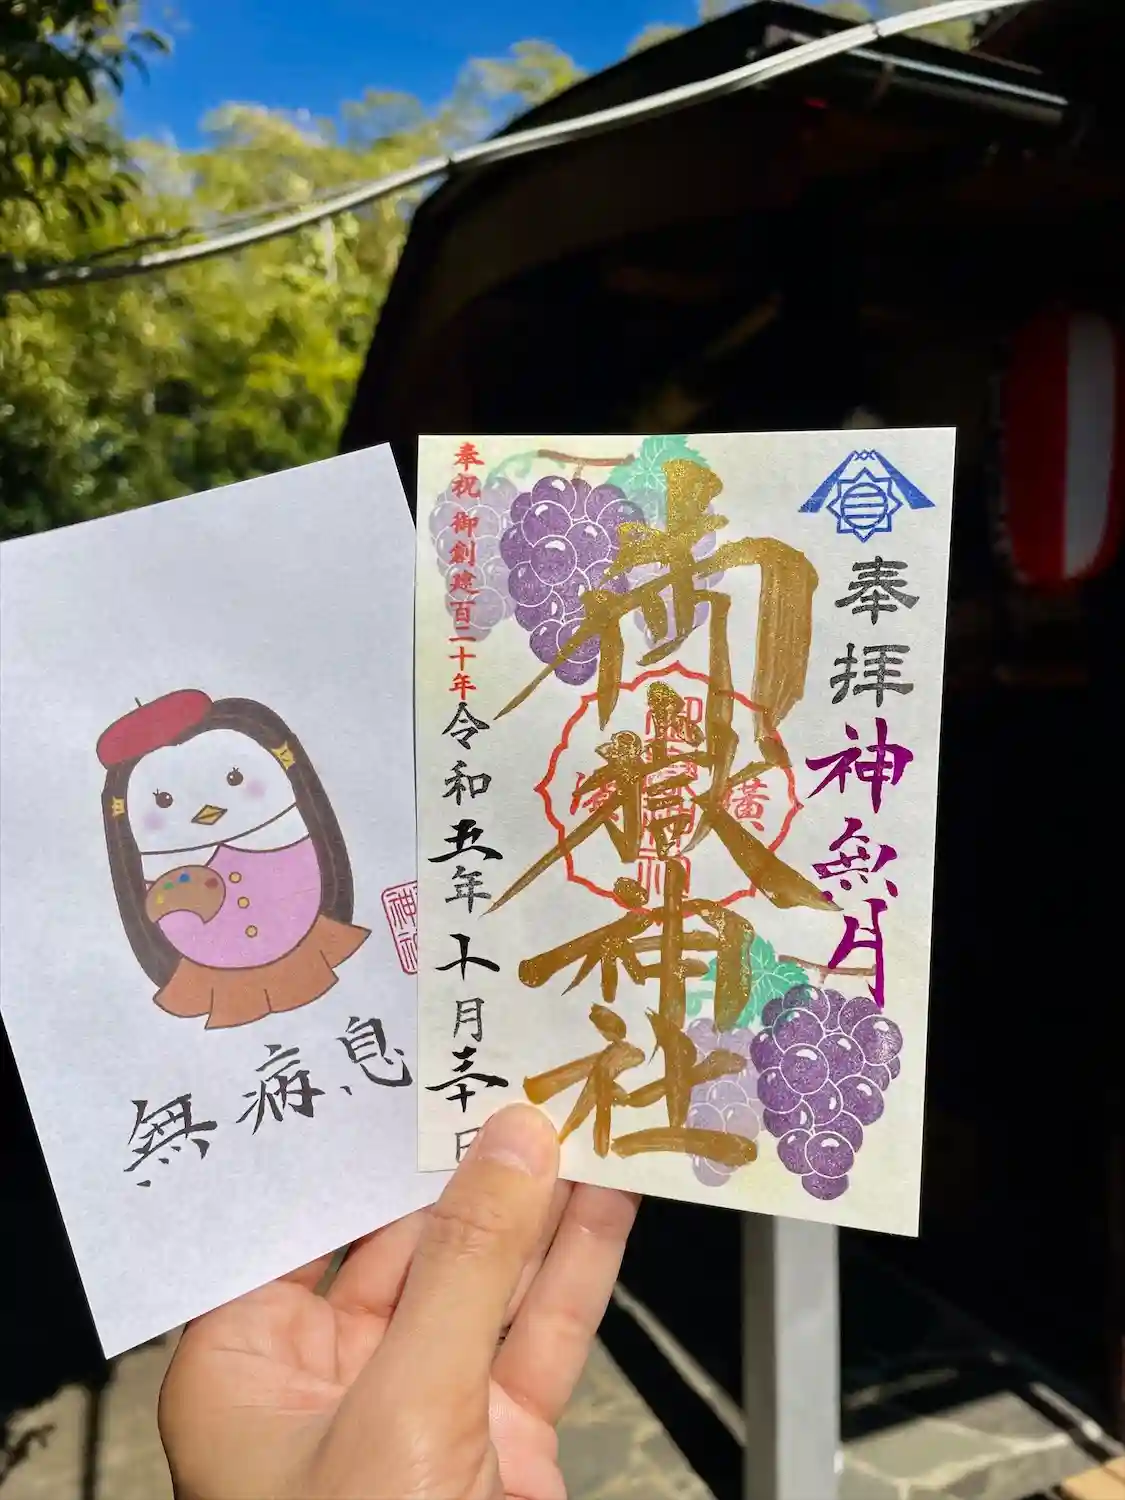 奉拝
神無月
御嶽神社
奉祝 御創建百二十年
令和五年十月三十日
無病息